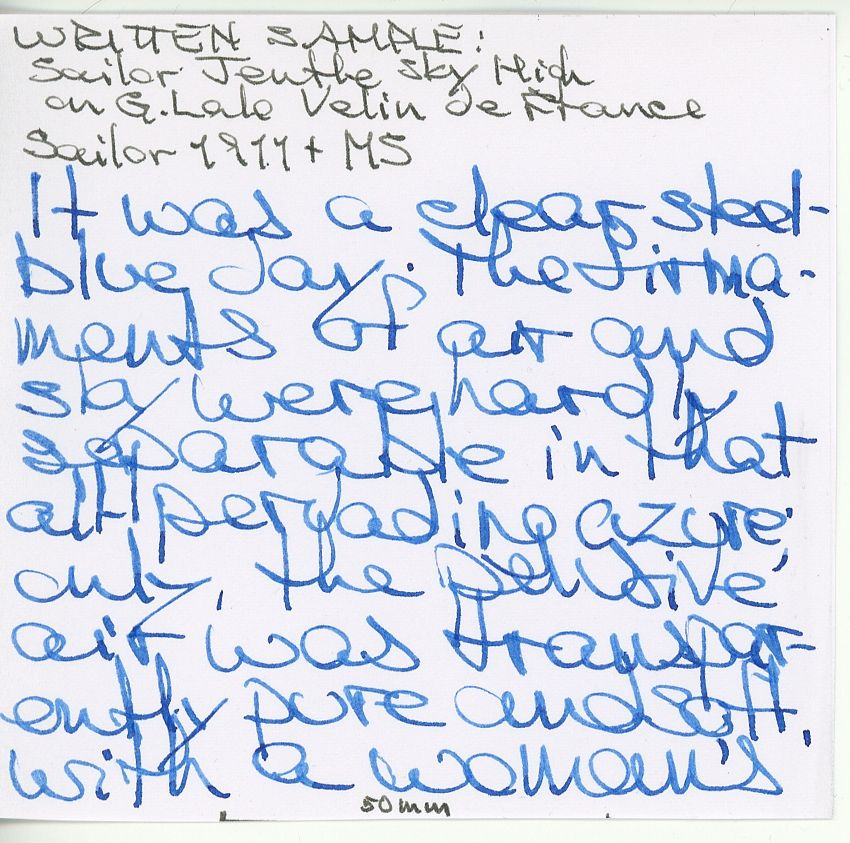 WRITTEN SAMPLE:
Sailor Jentle Sky High
on G. Lalo Velin de France
Sailor 1911+ MS
It was a clear steel-
blue day. The firma-
ments of air and
sky were hardly
separable in that
all-pervading azure;
only, the pensive
air was transpar-
ently pure and soft,
with a woman's
50mm